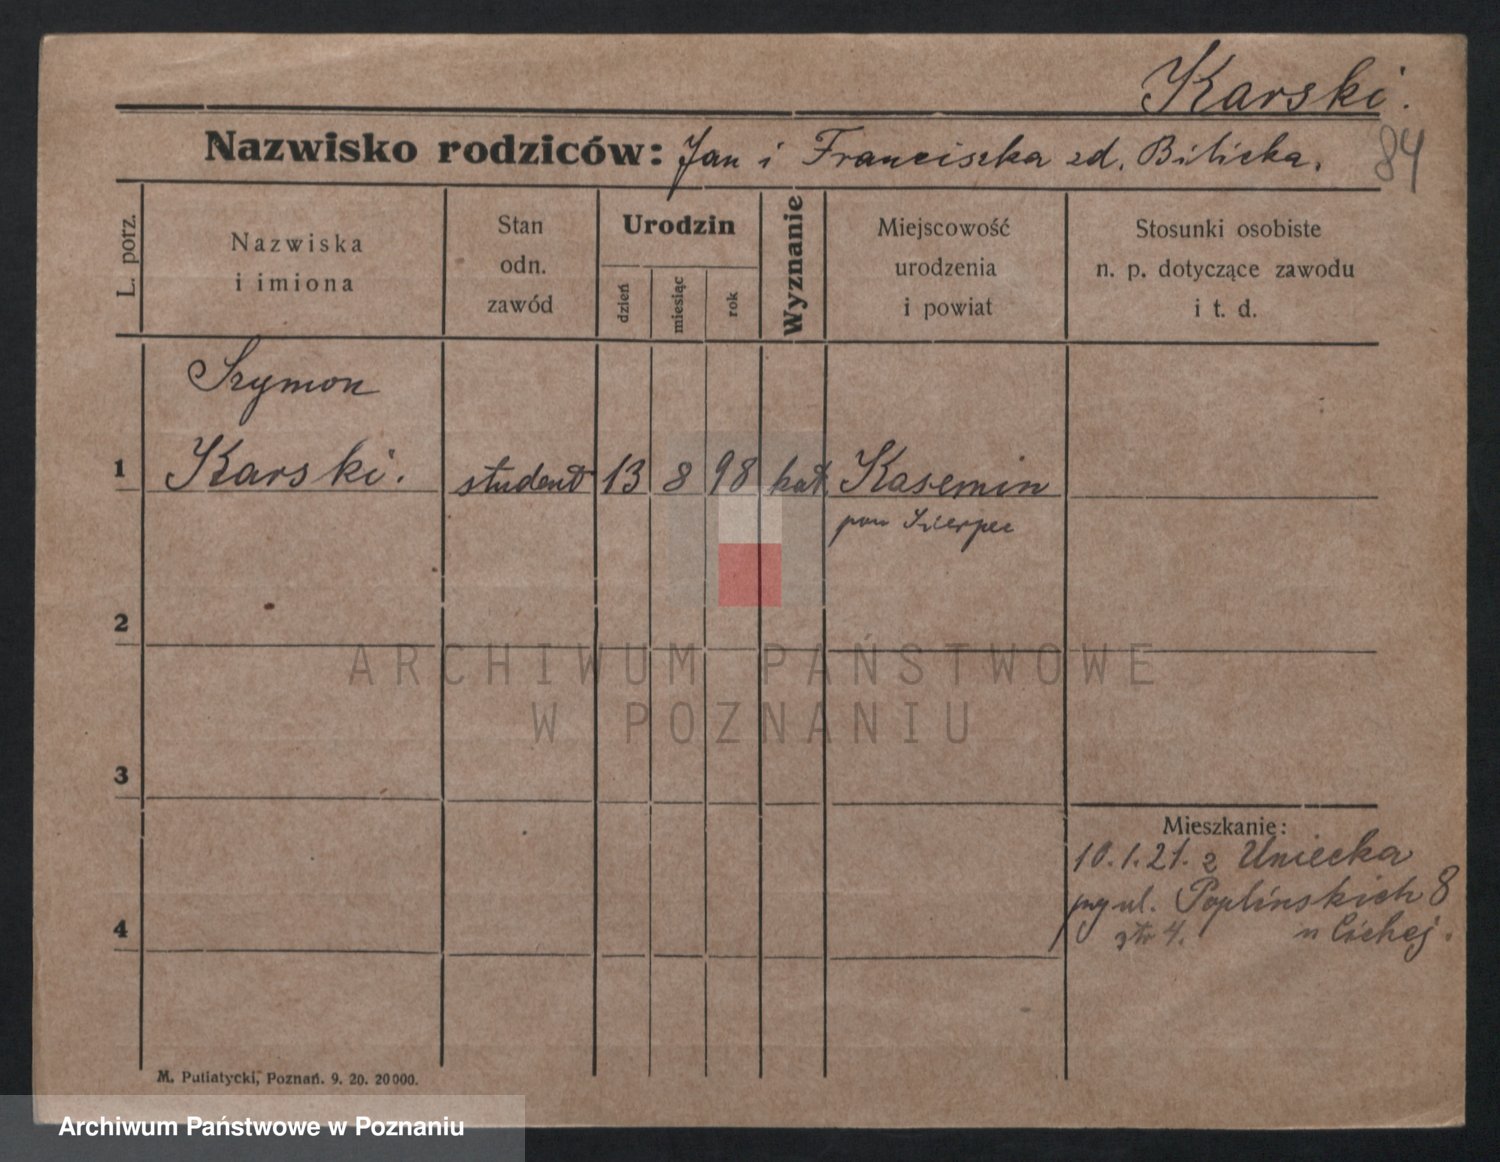 Karski.
Nazwisko rodziców: Jan i Franciszka zd. Bilicka.
84
L. porz.
Nazwiska
i imiona
Stan
odn.
zawód
Urodzin
dzień
miesiąc
rok
Wyznanie
Miejscowość
urodzenia
i powiat
Stosunki osobiste
n. p. dotyczące zawodu
i t. d.
Szymon
1 Karski. student 13 8 98 kat Kasemin
pow Sierpec
2
ARCHIWUM PAŃSTWOWE
W POZNANIU
3
Mieszkanie:
10.1.21. z Uniecka
przy ul. Poplińskich 8
4. u Cichej.
4
M. Putiatycki, Poznań. 9. 20. 20000.
Archiwum Państwowe w Poznaniu